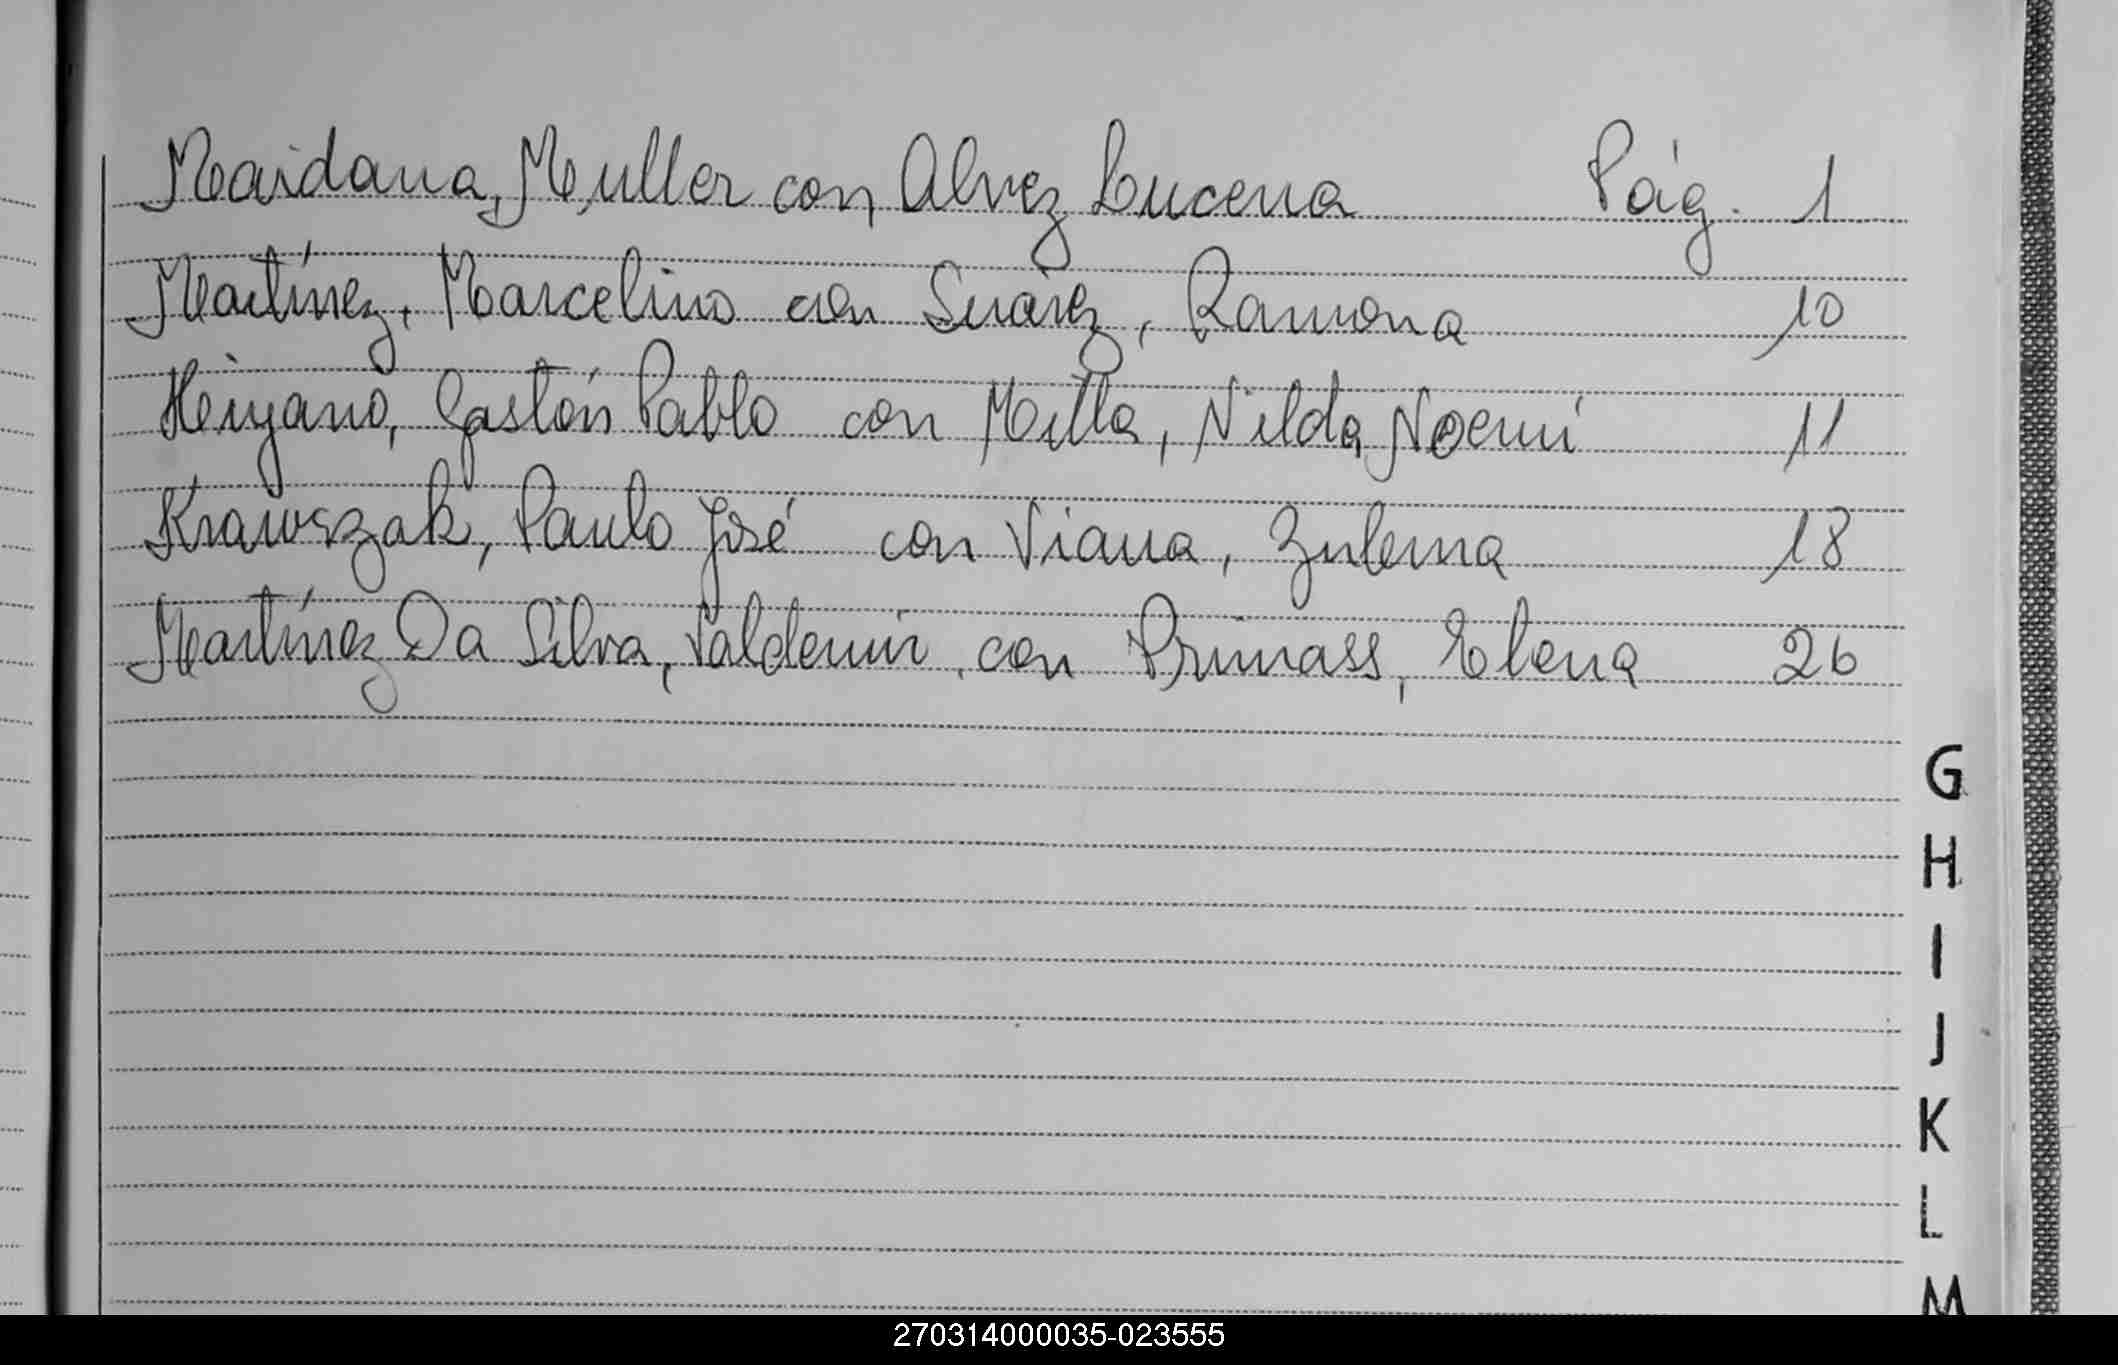 Maidana, Muller con Alvez Lucena Pág. 1
Martínez, Marcelino con Suárez, Ramona 10
Gastón Pablo con Milla, Nilda Noemí 11
Krawszak, Paulo José con Viana, Zulema 18
Martínez Da Silva, Valdemir, con Primass, Elena 26
G
H
I
J
K
L
M
270314000035-023555